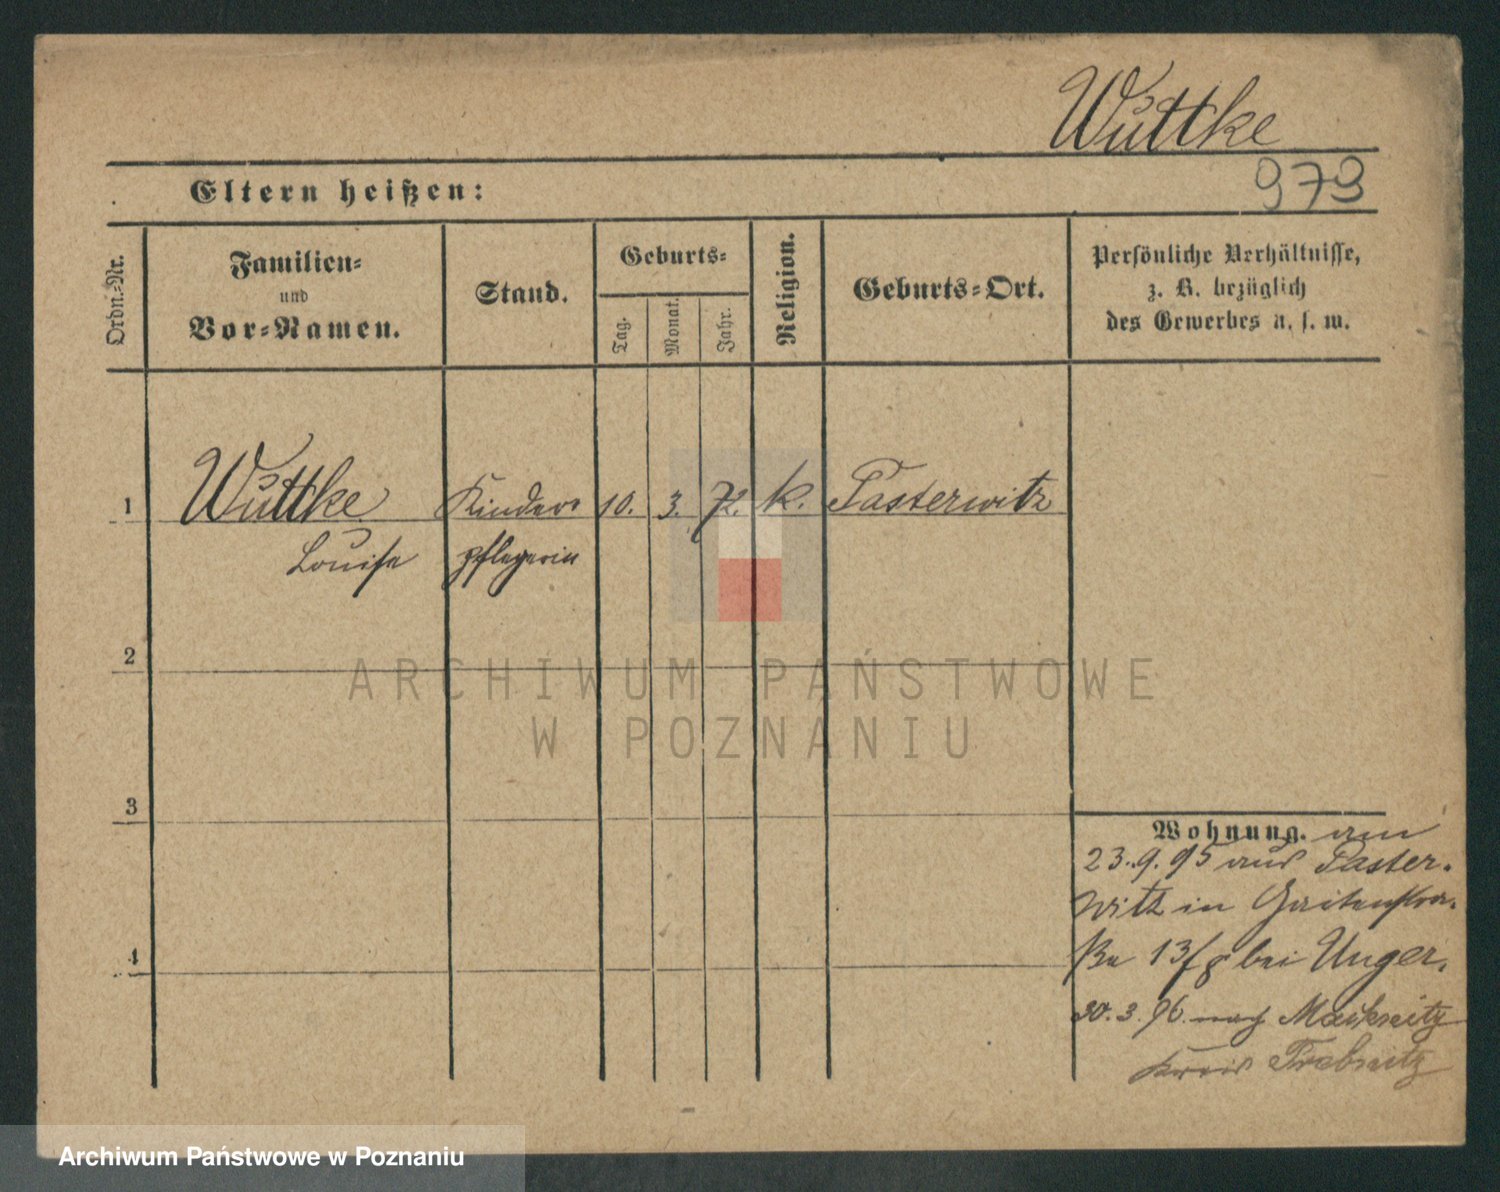 Wuttke
979
Eltern heißen:
Ordn.-Nr.
Familien-
und
Vor-Namen.
Stand.
Geburts-
Tag.
Monat.
Jahr.
Religion.
Geburts-Ort.
Persönliche Verhältnisse,
z. B. bezüglich
des Gewerbes u. s. w.
1 Wuttke Kinder 10. 3. 72. k. Pasterwitz
Louise pflegerin
2
3
4
Wohnung. am
23.9.95 aus Paster-
witz in
ße 13 bei Unger.
30.3.96. nach
Kreis Trebnitz
ARCHIWUM PAŃSTWOWE
W POZNANIU
Archiwum Państwowe w Poznaniu